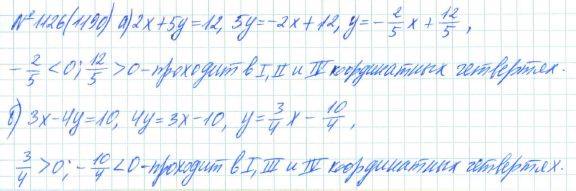 № 1126(1190) а) 2x+5y=12, 5y=-2x+12, y=-2/5 x + 12/5,
-2/5 <0; 12/5 >0 - проходит в I, II и IV координатных четвертях.
б) 3x-4y=10, 4y=3x-10, y=3/4 x - 10/4,
3/4 >0; -10/4 <0 - проходит в I, III и IV координатных четвертях.